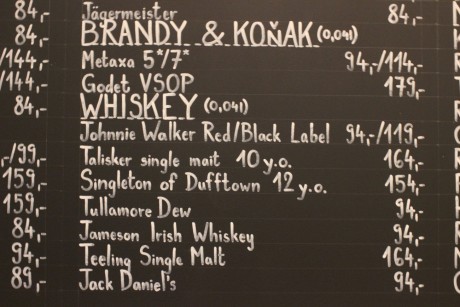 84,- Jägermeister 84,-
84,- BRANDY & KOŇAK (0,04l)
/144,- Metaxa 5*/7* 94,-/114,-
/144,- Godet VSOP 179,-
84,- WHISKEY (0,04l)
Johnnie Walker Red/Black Label 94,-/119,-
-/99,- Talisker single malt 10 y.o. 164,-
159,- Singleton of Dufftown 12 y.o. 154,-
159,- Tullamore Dew 94,-
84,- Jameson Irish Whiskey 94,-
94,- Teeling Single Malt 164,-
89,- Jack Daniel's 94,-